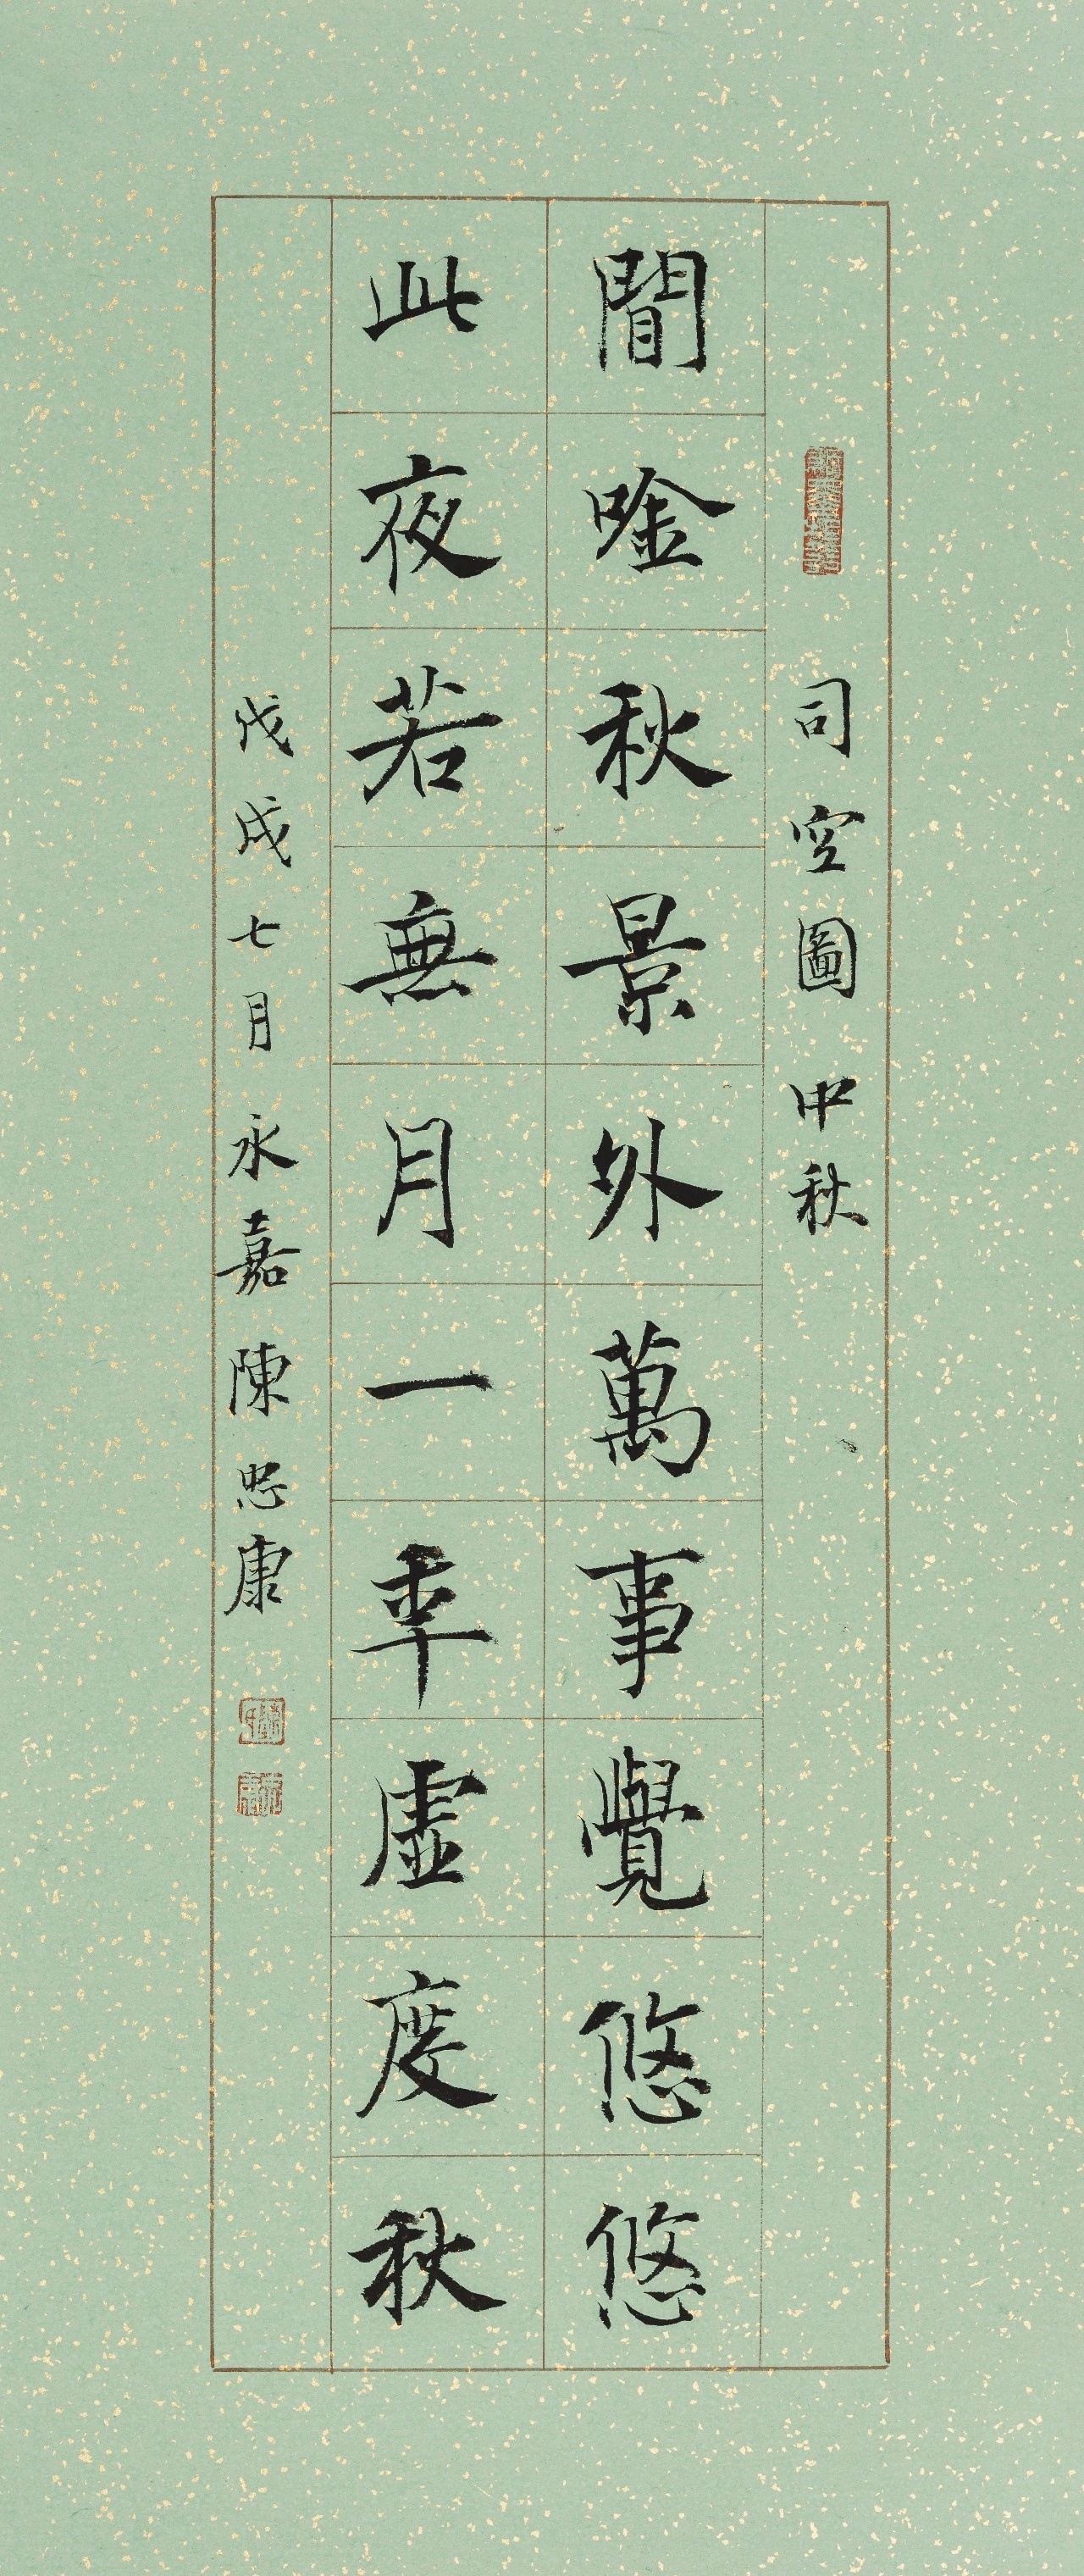 司空圖 中秋
閒唫秋景外萬事覺悠悠
此夜若無月一年虛度秋
戊戌七月永嘉陳忠康